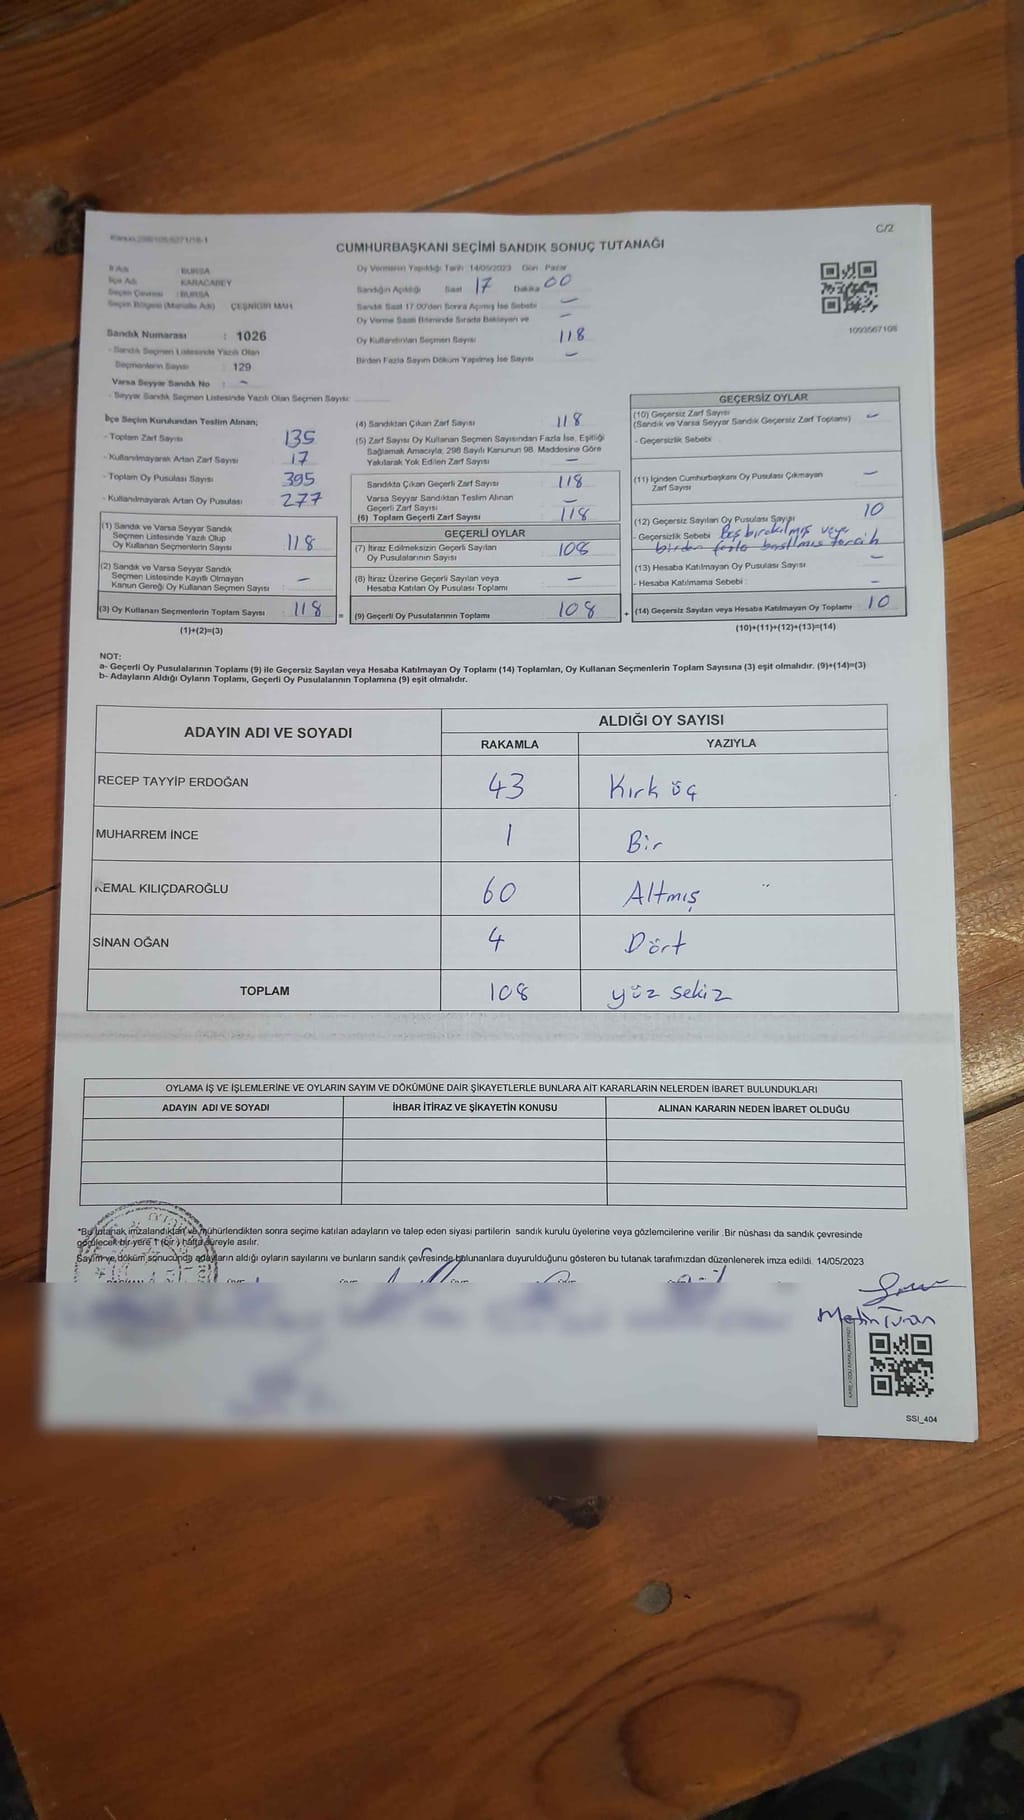 C/2
CUMHURBAŞKANI SEÇİMİ SANDIK SONUÇ TUTANAĞI
İl Adı : BURSA
İlçe Adı : KARACABEY
Seçim Çevresi : BURSA
Seçim Bölgesi (Mahalle Adı) ÇEŞNİGİR MAH.
Sandık Numarası : 1026
- Sandık Seçmen Listesinde Yazılı Olan
Seçmenlerin Sayısı : 129
Varsa Seyyar Sandık No : -
- Seyyar Sandık Seçmen Listesinde Yazılı Olan Seçmen Sayısı:
Oy Vermenin Yapıldığı Tarih 14/05/2023 Gün Pazar
Sandığın Açıldığı Saat 17 Dakika 00
Sandık Saat 17.00'den Sonra Açılmış İse Sebebi -
Oy Verme Saati Bitiminde Sırada Bekleyen ve -
Oy Kullandırılan Seçmen Sayısı 118
Birden Fazla Sayım Döküm Yapılmış İse Sayısı -
1093567108
İlçe Seçim Kurulundan Teslim Alınan;
- Toplam Zarf Sayısı 135
- Kullanılmayarak Artan Zarf Sayısı 17
- Toplam Oy Pusulası Sayısı 395
- Kullanılmayarak Artan Oy Pusulası 277
(1) Sandık ve Varsa Seyyar Sandık
Seçmen Listesinde Yazılı Olup
Oy Kullanan Seçmenlerin Sayısı 118
(2) Sandık ve Varsa Seyyar Sandık
Seçmen Listesinde Kayıtlı Olmayan
Kanun Gereği Oy Kullanan Seçmen Sayısı -
(3) Oy Kullanan Seçmenlerin Toplam Sayısı 118 =
(1)+(2)=(3)
(4) Sandıktan Çıkan Zarf Sayısı 118
(5) Zarf Sayısı Oy Kullanan Seçmen Sayısından Fazla İse, Eşitliği
Sağlamak Amacıyla; 298 Sayılı Kanunun 98. Maddesine Göre
Yakılarak Yok Edilen Zarf Sayısı -
Sandıkta Çıkan Geçerli Zarf Sayısı 118
Varsa Seyyar Sandıktan Teslim Alınan
Geçerli Zarf Sayısı -
(6) Toplam Geçerli Zarf Sayısı 118
GEÇERLİ OYLAR
(7) İtiraz Edilmeksizin Geçerli Sayılan
Oy Pusulalarının Sayısı 108
(8) İtiraz Üzerine Geçerli Sayılan veya
Hesaba Katılan Oy Pusulası Toplamı -
(9) Geçerli Oy Pusulalarının Toplamı 108 +
GEÇERSİZ OYLAR
(10) Geçersiz Zarf Sayısı
(Sandık ve Varsa Seyyar Sandık Geçersiz Zarf Toplamı) -
- Geçersizlik Sebebi
(11) İçinden Cumhurbaşkanı Oy Pusulası Çıkmayan
Zarf Sayısı -
(12) Geçersiz Sayılan Oy Pusulası Sayısı 10
- Geçersizlik Sebebi Boş bırakılmış veya
birden fazla basılmış tercih
(13) Hesaba Katılmayan Oy Pusulası Sayısı -
- Hesaba Katılmama Sebebi : -
(14) Geçersiz Sayılan veya Hesaba Katılmayan Oy Toplamı 10
(10)+(11)+(12)+(13)=(14)
NOT:
a- Geçerli Oy Pusulalarının Toplamı (9) ile Geçersiz Sayılan veya Hesaba Katılmayan Oy Toplamı (14) Toplamları, Oy Kullanan Seçmenlerin Toplam Sayısına (3) eşit olmalıdır. (9)+(14)=(3)
b- Adayların Aldığı Oyların Toplamı, Geçerli Oy Pusulalarının Toplamına (9) eşit olmalıdır.
ADAYIN ADI VE SOYADI ALDIĞI OY SAYISI
RAKAMLA YAZIYLA
RECEP TAYYİP ERDOĞAN 43 Kırk üç
MUHARREM İNCE 1 Bir
KEMAL KILIÇDAROĞLU 60 Altmış
SİNAN OĞAN 4 Dört
TOPLAM 108 yüz sekiz
OYLAMA İŞ VE İŞLEMLERİNE VE OYLARIN SAYIM VE DÖKÜMÜNE DAİR ŞİKAYETLERLE BUNLARA AİT KARARLARIN NELERDEN İBARET BULUNDUKLARI
ADAYIN ADI VE SOYADI İHBAR İTİRAZ VE ŞİKAYETİN KONUSU ALINAN KARARIN NEDEN İBARET OLDUĞU
*Bu tutanak imzalandıktan ve mühürlendikten sonra seçime katılan adayların ve talep eden siyasi partilerin sandık kurulu üyelerine veya gözlemcilerine verilir. Bir nüshası da sandık çevresinde
görülecek bir yere 1 (bir) hafta süreyle asılır.
Sayım ve döküm sonucunda adayların aldığı oyların sayılarını ve bunların sandık çevresinde bulunanlara duyurulduğunu gösteren bu tutanak tarafımızdan düzenlenerek imza edildi. 14/05/2023
Metin Turan
SSI_404